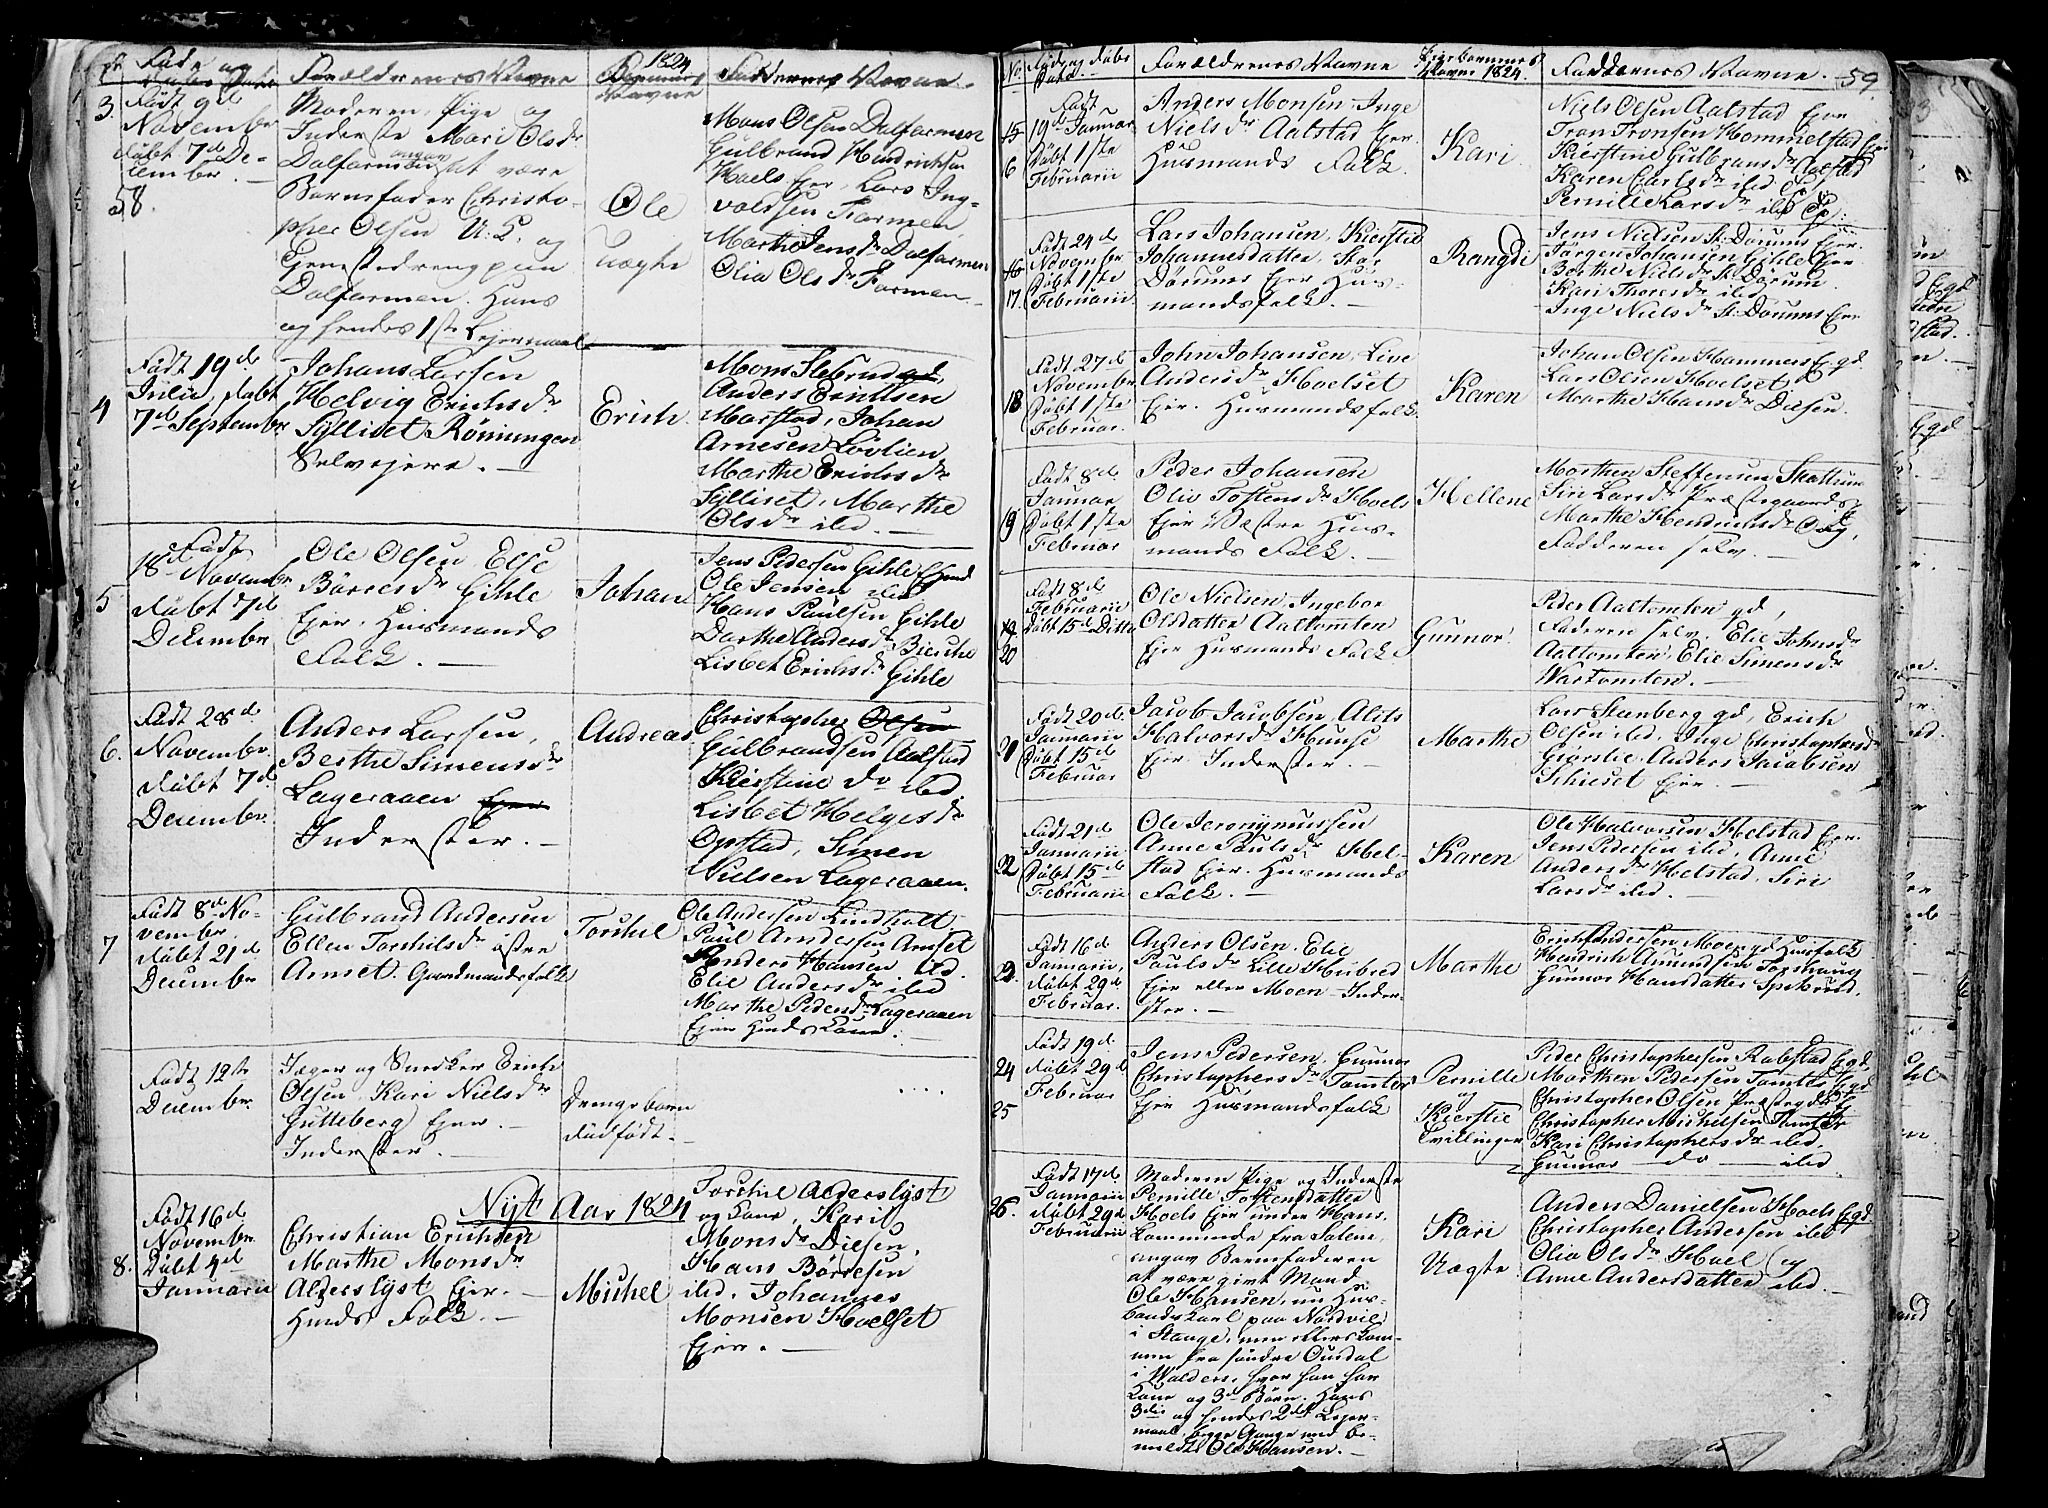 Føde og
Døbes Dato
Forældrenes Navne
1824
Børnenes
Navne
Faddernes Navne.
3.
Født 9d
November
døbt 7d De-
cember. —
58.
Moderen, Pige og
Inderste Mari Olsdr
Dalfarmen
at være
Barnefader Christo-
pher Olsen U. G. og
Tjenestedreng paa
Dalfarmen. Hans
og hendes 1ste Leiermaal
Ole
Uægte
Mons Olsen Dalfarmen
Gulbrand Hendrichsen
Hoels Ejer, Lars Ing-
valdsen Farmen,
Marthe Jensdr Dalfarmen
Olia Olsdr Farmen.
4
Født 19de
Julii, døbt
7d Septembr
Johans Larsen
Helvig Erichsdr
Sylliset Rønningen
Selvejere. —
Erich.
Mons Slebrud gd.
Anders Erichsen
Marstad, Johan
Arnesen Løvlien
Marthe Erichsdr
Sylliset, Marthe
Olsdr ibd. —
5
Født
18d Novembr
døbt 7d
Decembr
Ole Olsen Else
Børresdr Gihle
Ejer. Huusmands
Folk. —
Johan
Jens Pedersen Gihle
Ole Jensen ibd
Hans Paulsen Gihle
Dorthe Andersdr Bierche
Lisbet Erichsdr Gihle
6.
Født 28d
Novembr.
døbt 7d
Decembr.
Anders Larsen,
Berthe Simensdr
Lageraaen Ejer
Inderster. —
Andreas
Christopher Olsen
Gulbrandsen Aalstad
Kierstine do ibd
Lisbet Helgesdr
Opstad, Simen
Nielsen Lageraaen.
7
Født 8d No-
vembr.
døbt 21d
Decembr
Gulbrand Andersen
Ellen Torchilsdr østre
Arnset. Gaardmandsfolk
Torchel
Ole Andersen Lindholt
Paul Andersen Arnset
Anders Hansen ibd.
Elie Andersdr ibd
Marthe Pedersdr Lageraaen
Ejer Huuskone.
Født 12te
Decembr.
Jæger og Snedker Erich
Olsen, Kari Nielsdr
Gutteberg Ejer. —
Inderster. —
Drengebarn
dødfødt. —
Nyt Aar 1824
8.
Født 16d
Novembr.
Døbt 4d
Januarii
Christian Erichsen
Marthe Monsdr
Alderslyst Ejer. —
Huus Folk. —
Michel
Torchil Alderslyst
og Kone, Kari
Monsdr Diesen,
Hans Børresen
ibd. Johannes
Monsen Hoelset
Ejer. —
No.
Født og døbes
Dato.
Forældrenes Navne
Børnenes
Navne 1824.
Faddernes Navne. —
59.
15
6
Født
19d Januar
Døbt 1ste
Februarii
Anders Monsen, Inge
Nielsdr Aalstad Ejer.
Huusmands Folk.
Kari
Niels Olsen Aalstad Ejer
Tron Tronsen Hommelstad Ejer
Kierstine Gulbransdr Aalstad
Karen Carlsdr ibd.
Pernille Larsdr ibd
16
17.
Født 24d
Novembr
Døbt 1ste
Februarii
Lars Johansen, Kierstie
Johannesdatter, Stor
Dørums Ejer Huus-
mandsfolk. —
Rangdi
Jens Nielsen St. Dørums Ejer.
Jørgen Johansen Gihle Ejer
Berthe Nielsdr St. Dørum
Kari Thoresdr ibd
Inge Nielsdr St. Dørums Ejer
18
Født 27d
Novembr
Døbt 1ste
Februar.
John Johansen, Live
Andersdr Hoelset
Ejer. Huusmandsfolk.
Karen
Johan Olsen Hammers Ejgd.
Lars Olsen Hoelset
Marthe Hansdr Diesen.
19
Født 8d
Januar
Døbt 1ste
Februar
Peder Johansen
Olia Tostensdr Hoels
Ejer Vestre Huus-
mands Folk. —
Hellene
Morthen Steffensen Skattum
Siri Larsdr Præstegaards
Marthe Hendrichsdr
Fadderen selv. —
20
Født 8d
Februarii
Døbt 15d Ditto
Ole Nielsen, Ingebor
Olsdatter Aaltomten
Ejer Huusmands Folk
Gunnor
Peder Aaltomten gd,
Faderen selv. Elie Johnsdr
Aaltomten, Elie Simensdr
Wastomten. —
21
Født 20d
Januarii
Døbt 15d
Februar
Jacob Jacobsen, Alits
Halvorsdr Hunse
Ejer Inderster. —
Marthe
Lars Stenberg gd, Erich
Olsen ibd, Inge Christophersdr
Giørslie, Anders Jacobsen
Schieset Ejer. —
22
Født 21d
Januarii
Døbt 15d
Februarii
Ole Jeronymussen
Anne Paulsdr Hel-
stad Ejer. Huusmands
Folk. —
Karen
Ole Halvorsen Helstad Ejer.
Jens Pedersen ibd, Anne
Andersdr Helstad, Siri
Larsdr ibd. —
23.
Født 16d
Januarii,
døbt 29d
Februar.
Anders Olsen. Elie
Paulsdr Lille Hubred
Ejer eller Moen Inder-
ster. —
Marthe
Erich Andersen Moen gd Huusfolk
Hendrich Amundsen Torshaug
Gunnor Hansdatter Spikrud.
24
25
Født 19d
døbt 29d
Februar
Jens Pedersen, Gunnor
Christophersdr Tomter
Ejer Huusmandsfolk
Pernille
og
Kierstie
Tvillinger
Peder Christophersen Rolstad Egd.
Morthen Pedersen Tomter Egd
Christopher Olsen Præstegd E
Christopher Michelsen Tomter
Kari Christophersdr ibd.
Gunnor — do — ibd.
26.
Født 17d
Januarii
døbt 29d
Februarii
Moderen Pige og Inderste
Pernille Tostensdatter
Hoels Ejer under Hans,
kommende fra Solem,
angav Barnefaderen
at være gift Mand
Ole Hansen, nu Huus-
bondskarl paa Nordvie
i Stange, men ellers kom-
men fra søndre Ourdal
i Walders, hvor han har
Kone og 3d Børn. Hans
3die og hendes 2det Leier-
maal, begge Gange med be-
meldte Ole Hansen. —
Kari
Uægte
Anders Danielsen Hoels Egd
Christopher Andersen ibd
Olia Olsdr Hoel og
Anne Andersdatter ibd. —